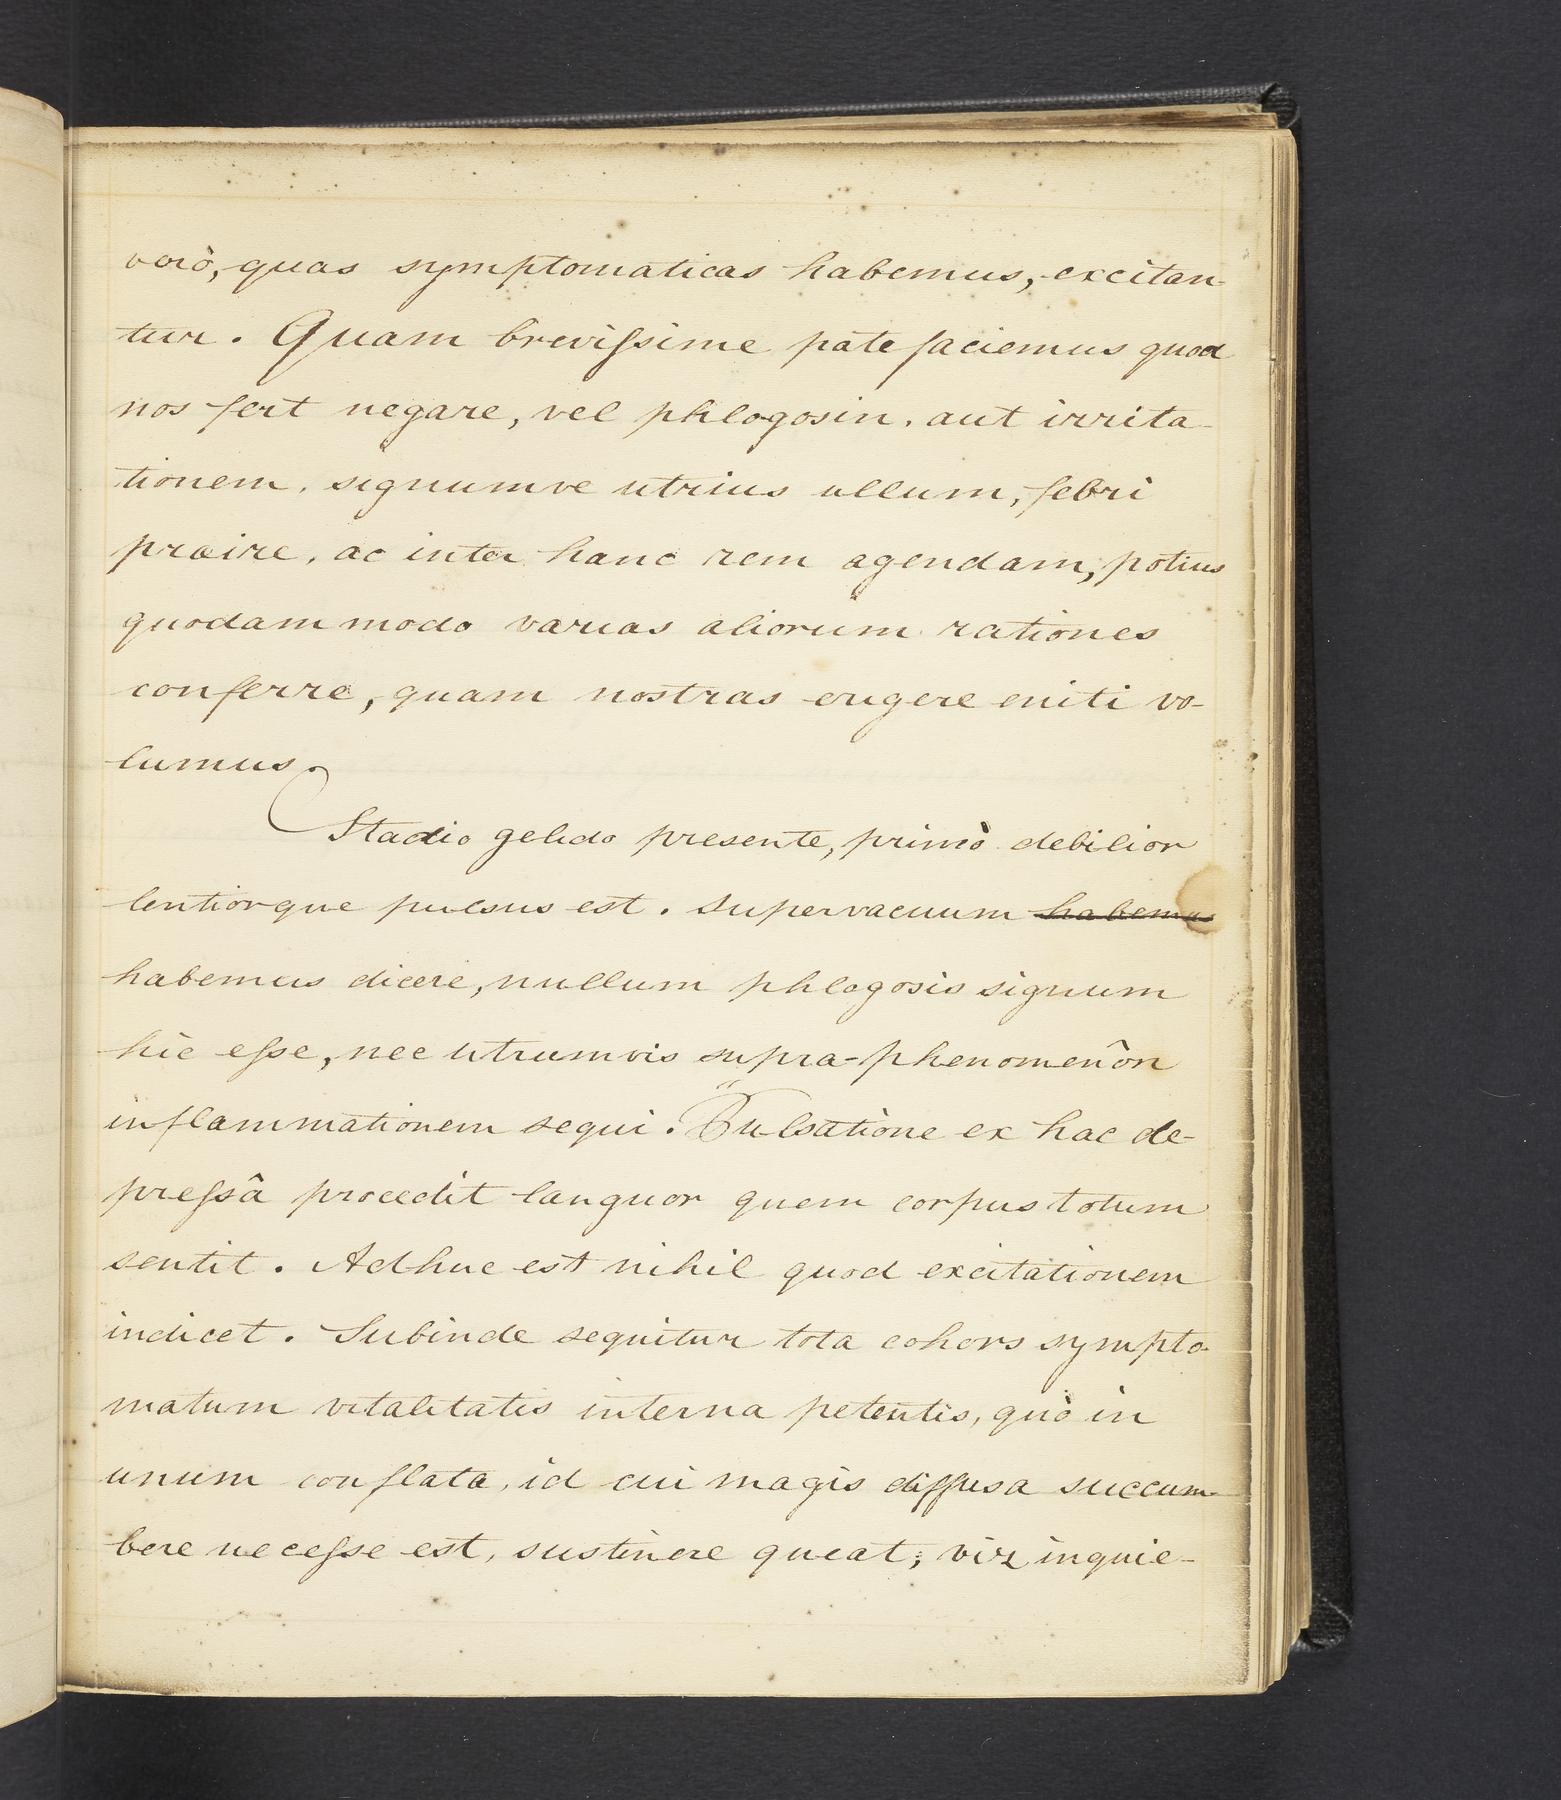 verò, quas symptomaticas habemus, excitan-
tur. Quam brevissime patefaciemus quod
nos fert negare, vel phlogosin, aut irrita-
tionem, signumve utrius ullum, febri
præire, ac inter hanc rem agendam, potius
quodammodo varias aliorum rationes
conferre, quam nostras erigere eniti vo-
lumus.
Stadio gelido presente, primò debilior
lentiorque pulsus est. Supervacuum habemus
habemus dicere, nullum phlogosis signum
hic esse, nec utrumvis supra-phenomenôn
inflammationem sequi. Pulsatione ex hac de-
pressâ procedit languor quem corpus totum
sentit. Adhuc est nihil quod excitationem
indicet. Subinde sequitur tota cohors sympto-
matum vitalitatis interna petentis, quò in
unum conflata, id cui magis diffusa succum-
bere necesse est, sustinere queat; viz inquie-